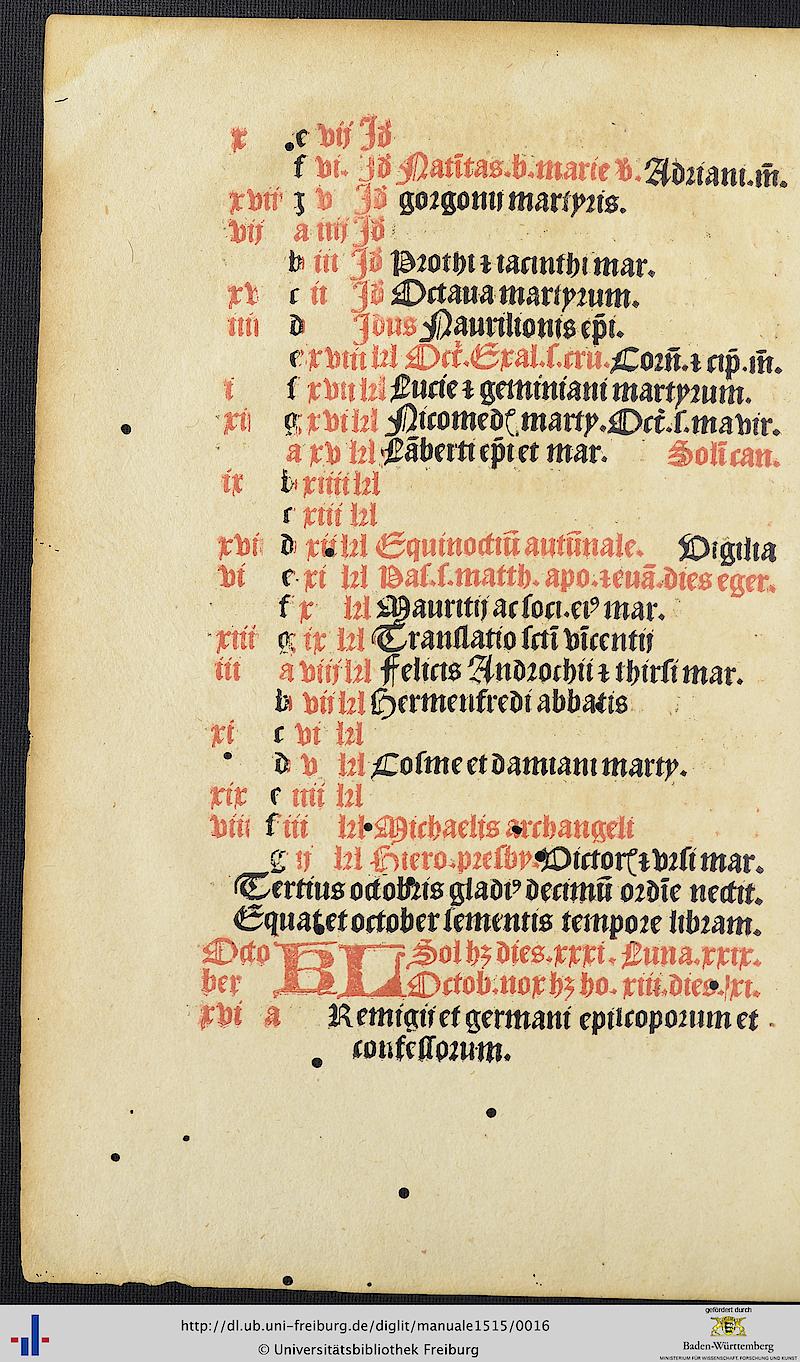 x .e vij Jđ
f vi. Jđ Natītas.b.marie v. Adriani.m̄.
xvii g v Jđ gorgonij martyris.
vij a iiij Jđ
b iii Jđ Prothi ⁊ iacinthi mar.
xv c ii Jđ Octaua martyrum.
iiii d Jdus Naurilionis ep̄i.
e xviii kl Oct̄.Exal.s.cru.Corn̄.⁊ cip̄.m̄.
i f xvii kl Lucie ⁊ geminiani martyrum.
xij g xvi kl Nicomedꝭ marty.Oct̄.s.ma vir.
a xv kl Lāberti ep̄i et mar. Sol ī can.
ix b xiiii kl
c xiii kl
xvi d xii kl Equinoctiū autūnale. Vigilia
vi e xi kl Nas.s.matth. apo.⁊euā.dies eger.
f x kl Mauritij ac soci.eiꝰ mar.
xiii g ix kl Translatio sctī vīcentij
iii a viij kl Felicis Androchii ⁊ thirsi mar.
b vii kl Hermenfredi abbatis
xi c vi kl
d v kl Cosme et damiani marty.
xix e iiii kl
viii f iii kl Michaelis archangeli
g ij kl Hiero.presby. Victorꝭ ⁊ vrsi mar.
Tertius octobris gladiꝰ decimū ordīe nectit.
Equat et october sementis tempore libram.
Octo KL Sol hꝫ dies.xxxi. Luna.xxix.
ber Octob.nox hꝫ ho. xiii.dies.xi.
xvi a Remigij et germani episcoporum et
confessorum.
http://dl.ub.uni-freiburg.de/diglit/manuale1515/0016
© Universitätsbibliothek Freiburg
gefördert durch
Baden-Württemberg
MINISTERIUM FÜR WISSENSCHAFT, FORSCHUNG UND KUNST